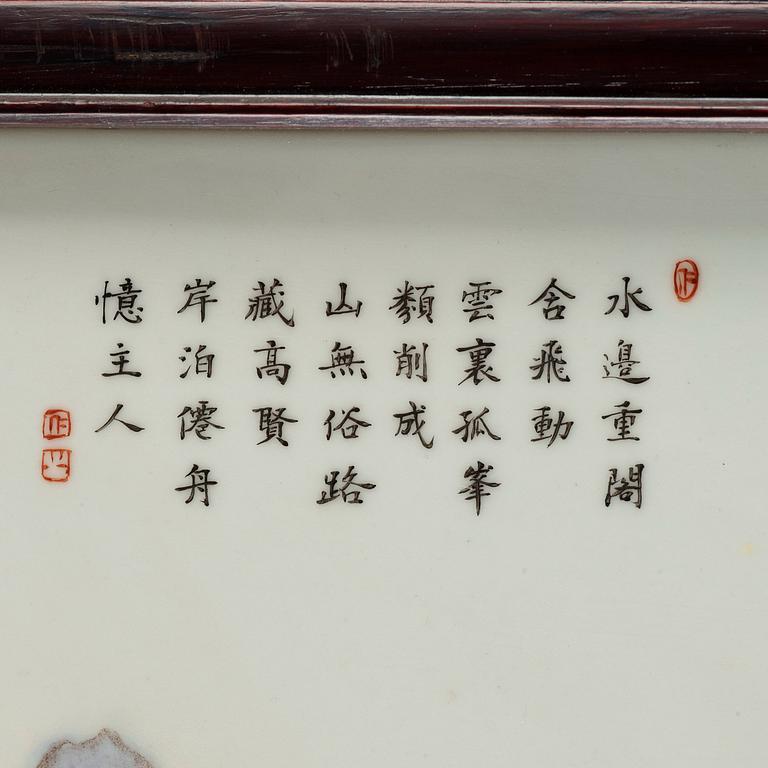 水邊重閣
含飛動
雲裏孤峯
類削成
山無俗路
藏高賢
岸泊僊舟
憶主人